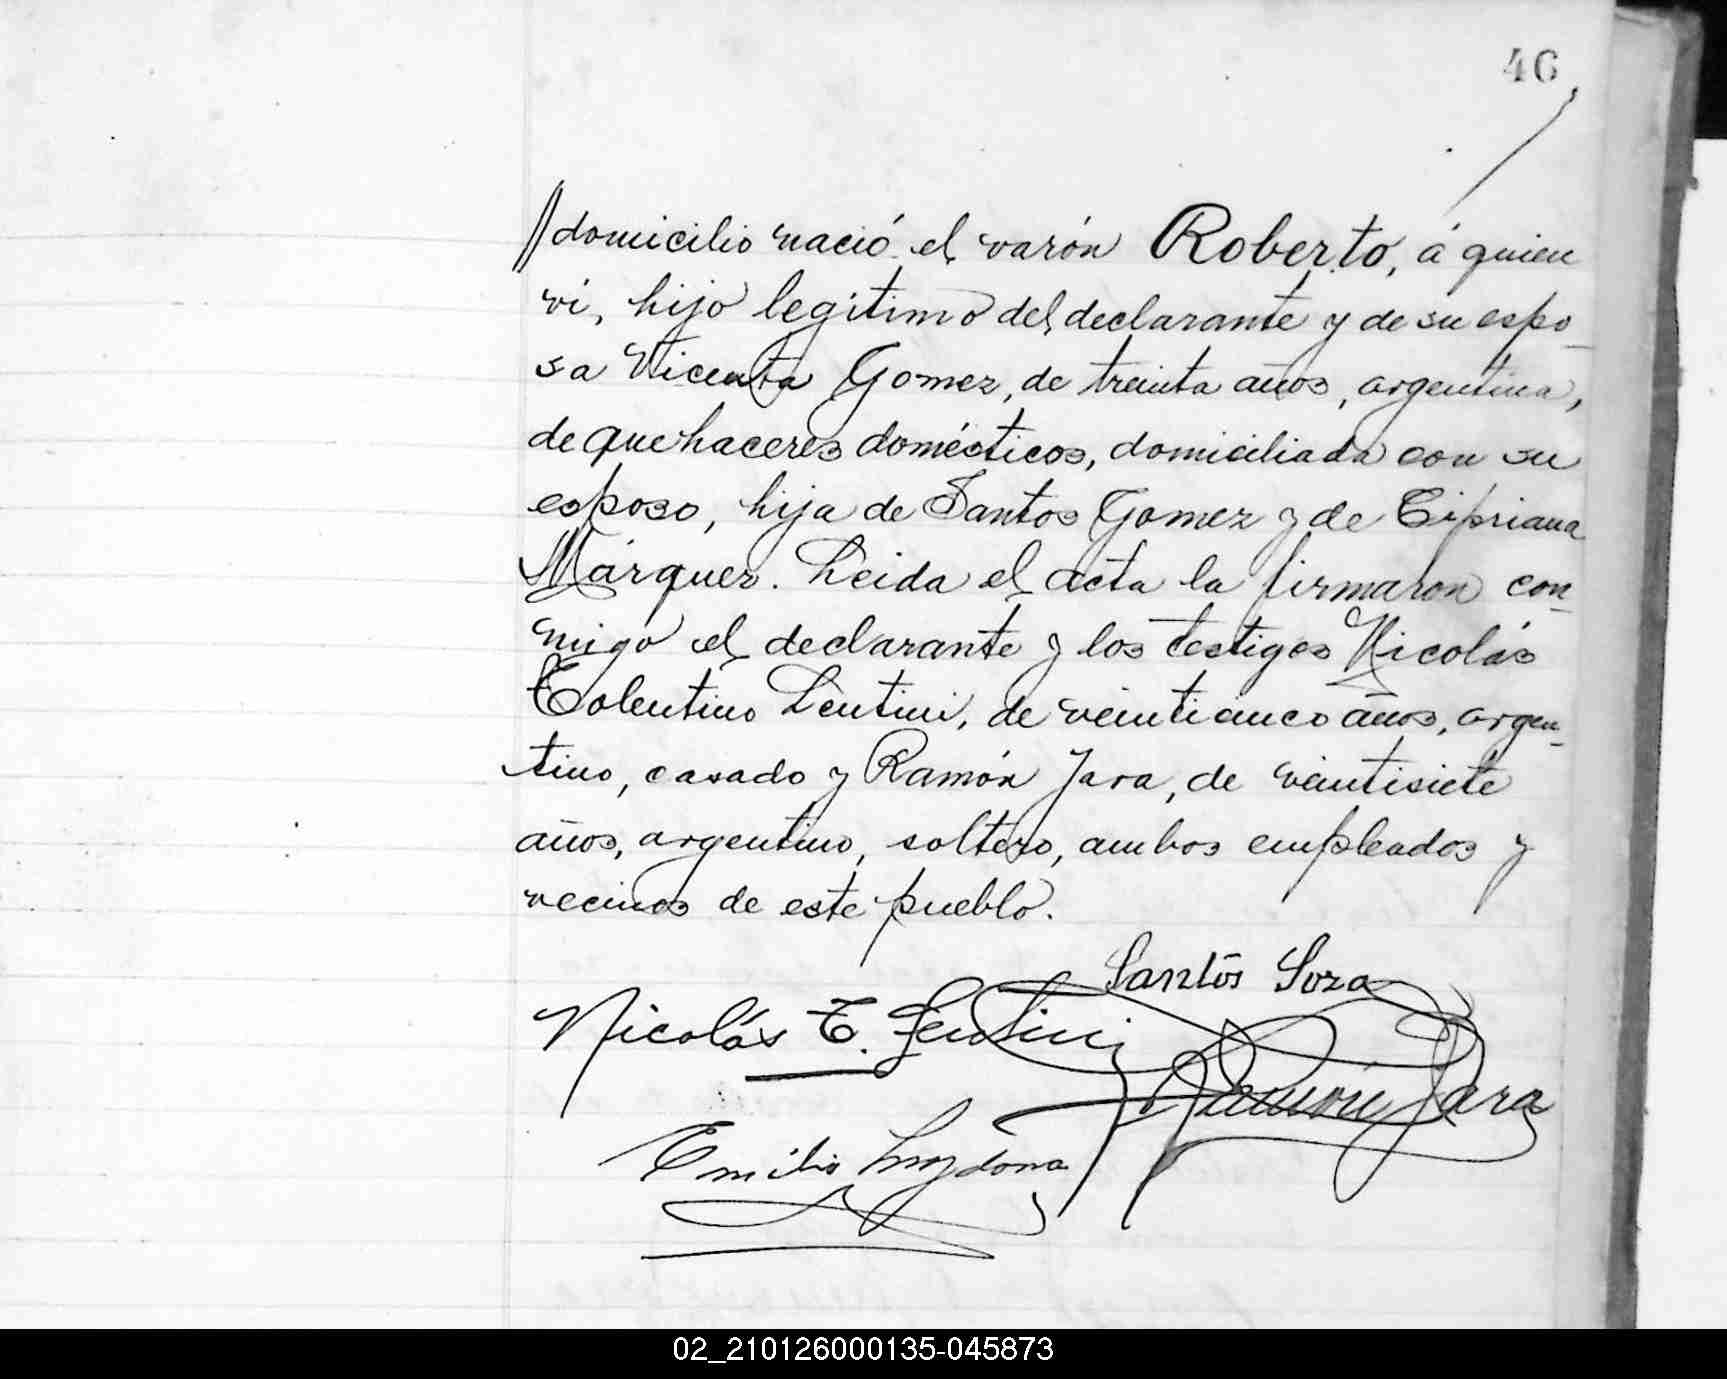 46
domicilio nació el varón Roberto, á quien
ví, hijo legítimo del declarante y de su espo-
sa Vicenta Gomez, de treinta años, argentina,
de quehaceres domésticos, domiciliada con su
esposo, hija de Santos Gomez y de Cipriana
Márquez. Leida el acta la firmaron con-
migo el declarante y los testigos Nicolás
Tolentino Lentini, de veinticinco años, argen-
tino, casado y Ramón Jara, de veintisiete
años, argentino, soltero, ambos empleados y
vecinos de este pueblo.
Santos Soza
Nicolás T. Lentini
Ramón Jara
Emilio
02_210126000135-045873